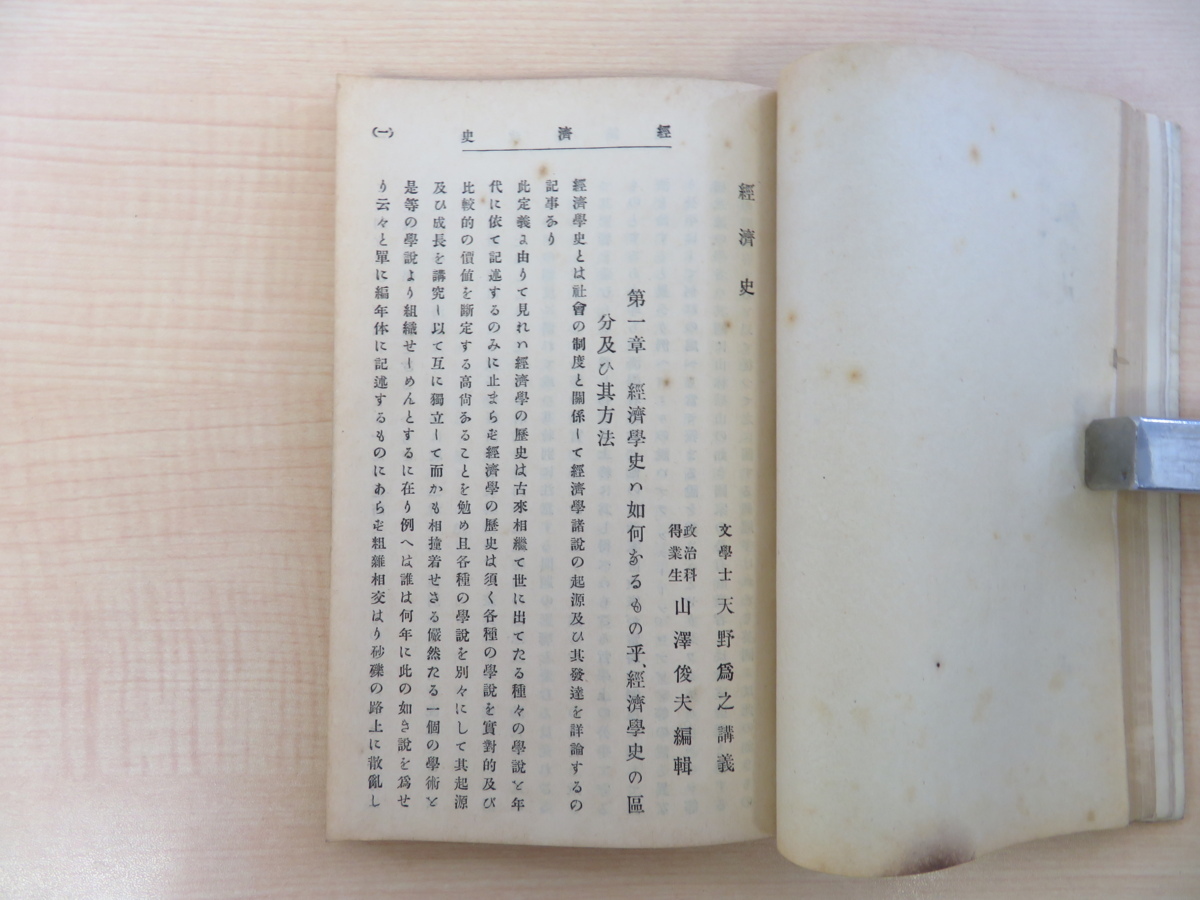 經濟史
(一)
經濟史
文學士 天野爲之講義
政治科得業生 山澤俊夫編輯
第一章 經濟學史ハ如何なるもの乎、經濟學史の區
分及ひ其方法
經濟學史とは社會の制度と關係して經濟學諸說の起源及ひ其發達を詳論するの
記事なり
此定義ま由りて見れハ經濟學の歷史は古來相繼て世に出てたる種々の學說を年
代に依て記述するのみに止まらを經濟學の歷史は須く各種の學說を實對的及び
比較的の價値を斷定する高尙なることを勉め且各種の學說を別々にして其起源
及ひ成長を講究し以て互に獨立して而かも相撞着せさる儼然たる一個の學術と
是等の學說より組織せしめんとするに在り例へは誰は何年に此の如き說を爲せ
り云々と單に編年体に記述するものにあらを粗雜相交はり砂礫の路上に散亂し